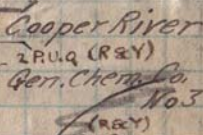 Cooper River
2 P.U.Q (R&Y)
Gen. Chem. Co.
No 3
(R&Y)